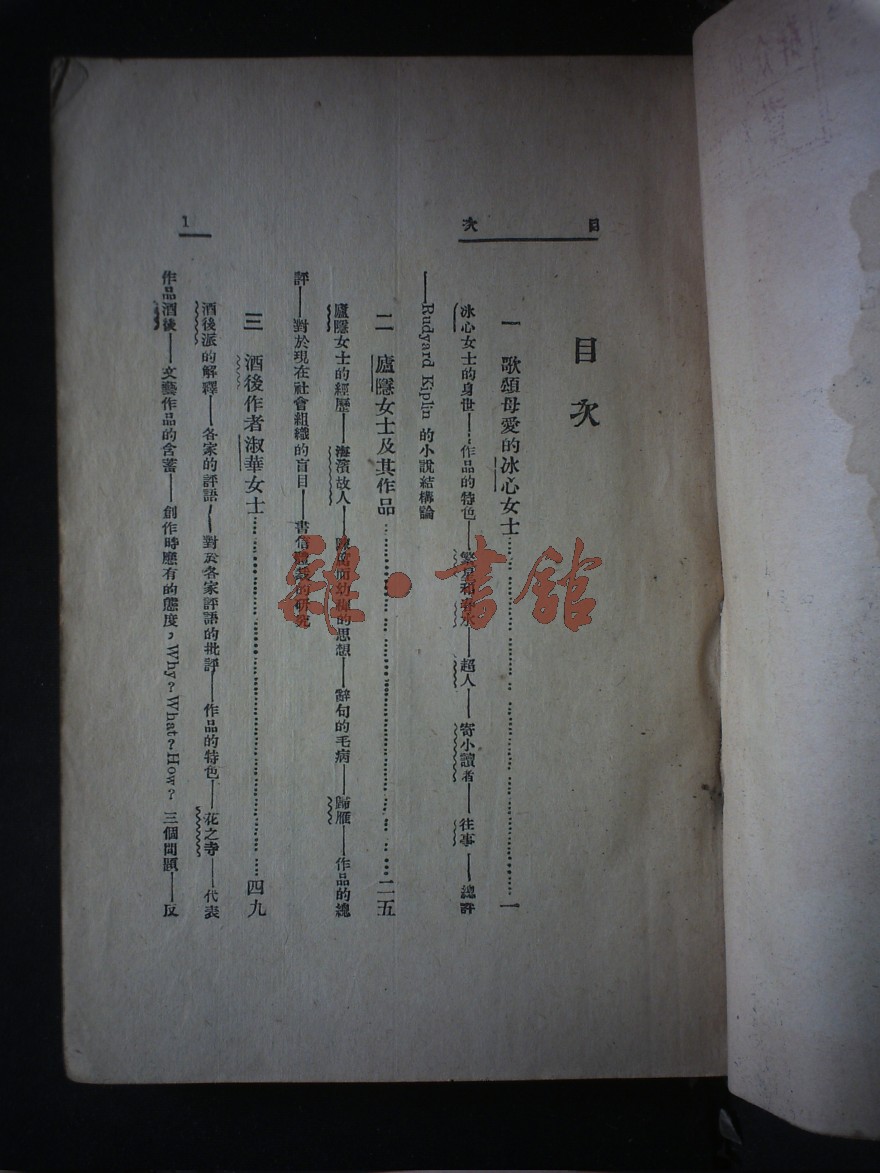 目次
目次
一 歌頌母愛的冰心女士……一
冰心女士的身世——作品的特色——繁星和春水——超人——寄小讀者——往事——總評
——Rudyard Kiplin 的小說結構論
二 廬隱女士及其作品……二五
廬隱女士的經歷——海濱故人——幼稚的思想——辭句的毛病——歸雁——作品的總
評——對於現在社會組織的盲目——書信體裁的研究
三 酒後作者淑華女士……四九
酒後派的解釋——各家的評語——對於各家評語的批評——作品的特色——花之寺——代表
作品酒後——文藝作品的含蓄——創作時應有的態度，Why? What? How? 三個問題——反
1
雜·書館